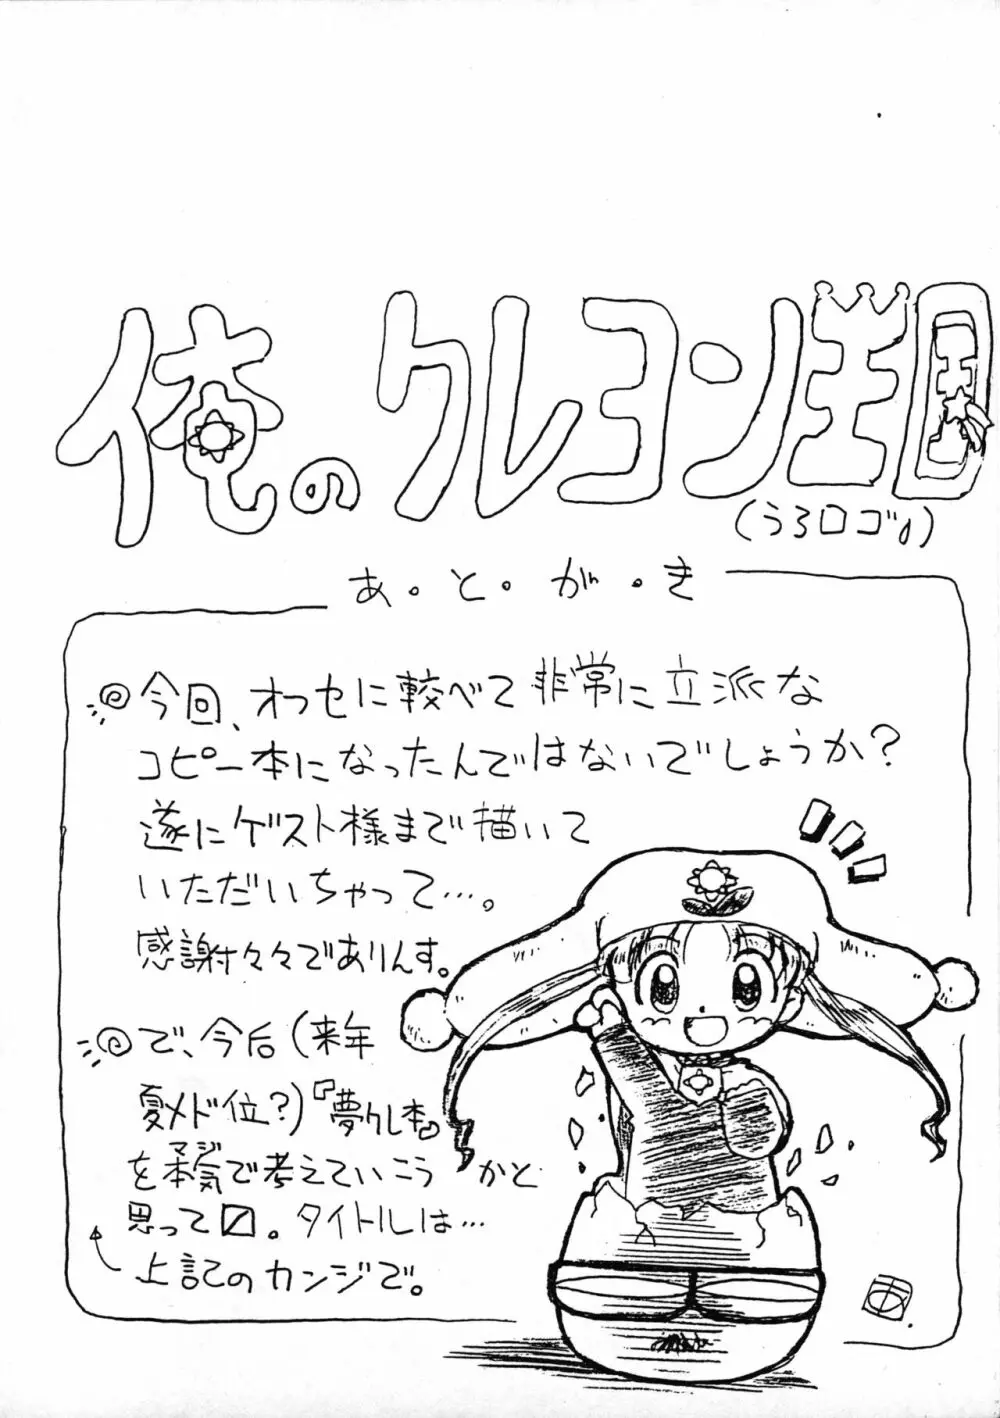 俺のクレヨン王国
(うろロゴ)
あ・と・が・き
今回、オフセに較べて非常に立派な
コピー本になったんではないでしょうか?
遂にゲスト様まで描いて
いただいちゃって…。
感謝々々でありんす。
で、今后(来年
夏メド位?)『夢クレ本』
を本気(マジ)で考えていこうかと
思って〼。タイトルは…
上記のカンジで。